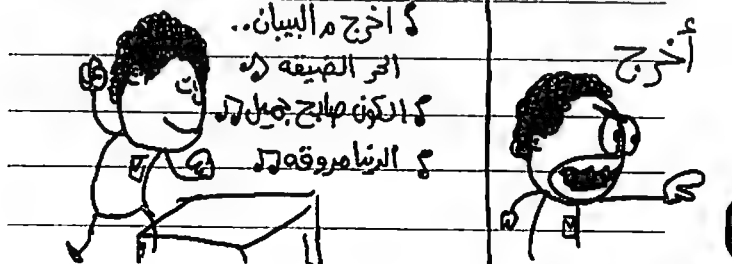 ♪ اخرج م البيبان..
الحر الضيقه ♫
♪ الكون صابح جميل ♫
♪ الدنيا مروقه ♫
أخرج